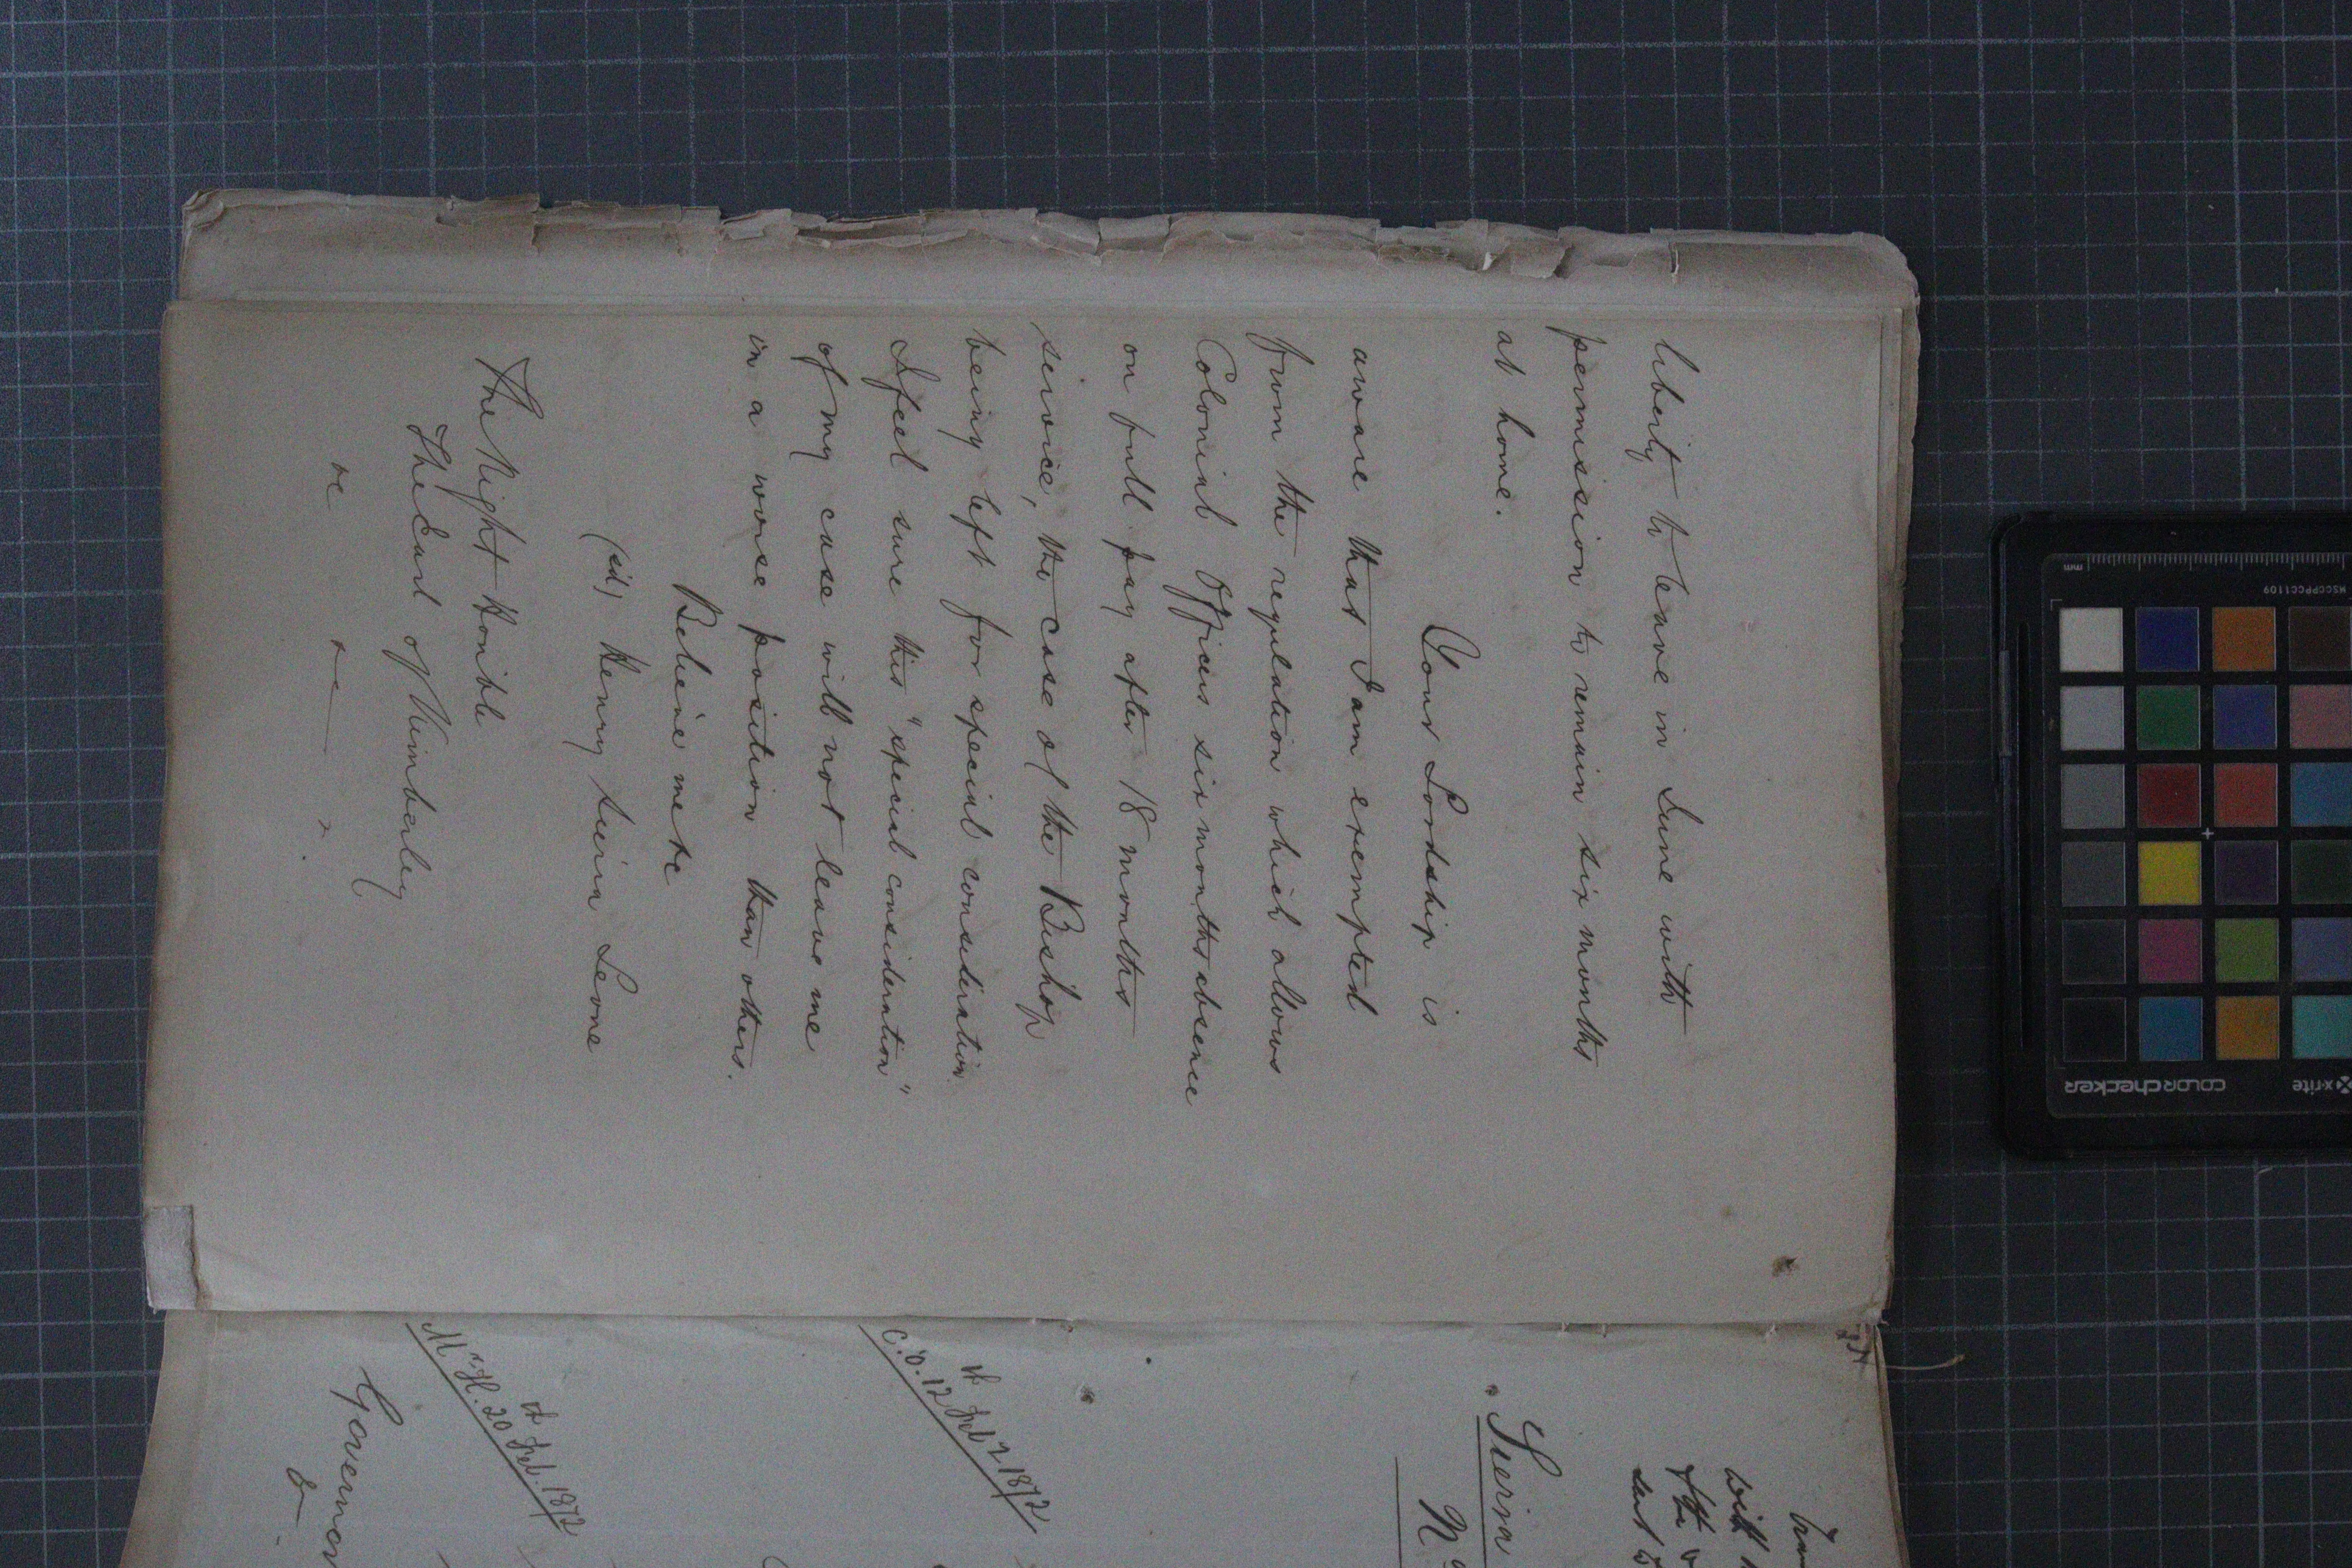 liberty to leave in June with
permission to remain six months
at home.
Your Lordship is
aware that I am exempted
from the regulation which allows
Colonial Officers six months absence
on full pay after 18 months
service, the case of the Bishop
being left for special consideration.
I feel sure this "special consideration"
of my case will not leave me
in a worse position than others.
Believe me &c
(sd) Henry Sierra Leone
The Right Honible
The Earl of Kimberley
&c &c
Sierra
C.O. 12th Feb 7 1872
Mr H. 20th Feb. 1872
Governor
&
with
sent
mm
MSCCPPCC1109
x-rite
colorchecker